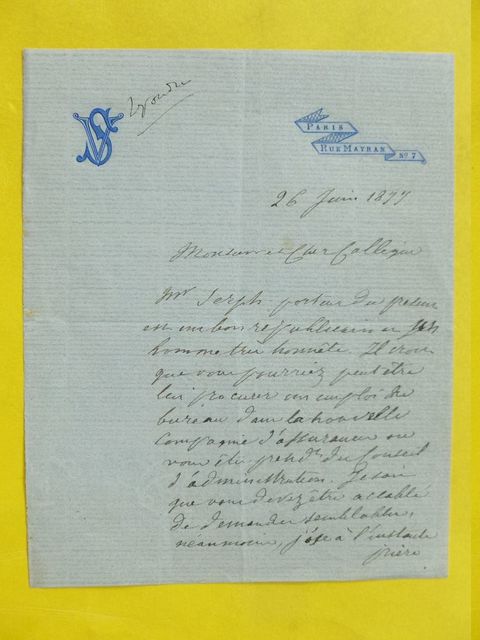 VS
PARIS
RUE MAYRAN
No 7
26 Juin 1877
Monsieur et Cher Collègue
Mr Serph porteur du présent
est un bon républicain et un
homme très honnête. Il croit
que vous pourriez peut être
lui procurer un emploi de
bureau dans la nouvelle
compagnie d'assurances où
vous êtes présdt du Conseil
d'administration. Je sais
que vous devez être accablé
de demandes semblables,
néanmoins, j'ose à l'instante
prière